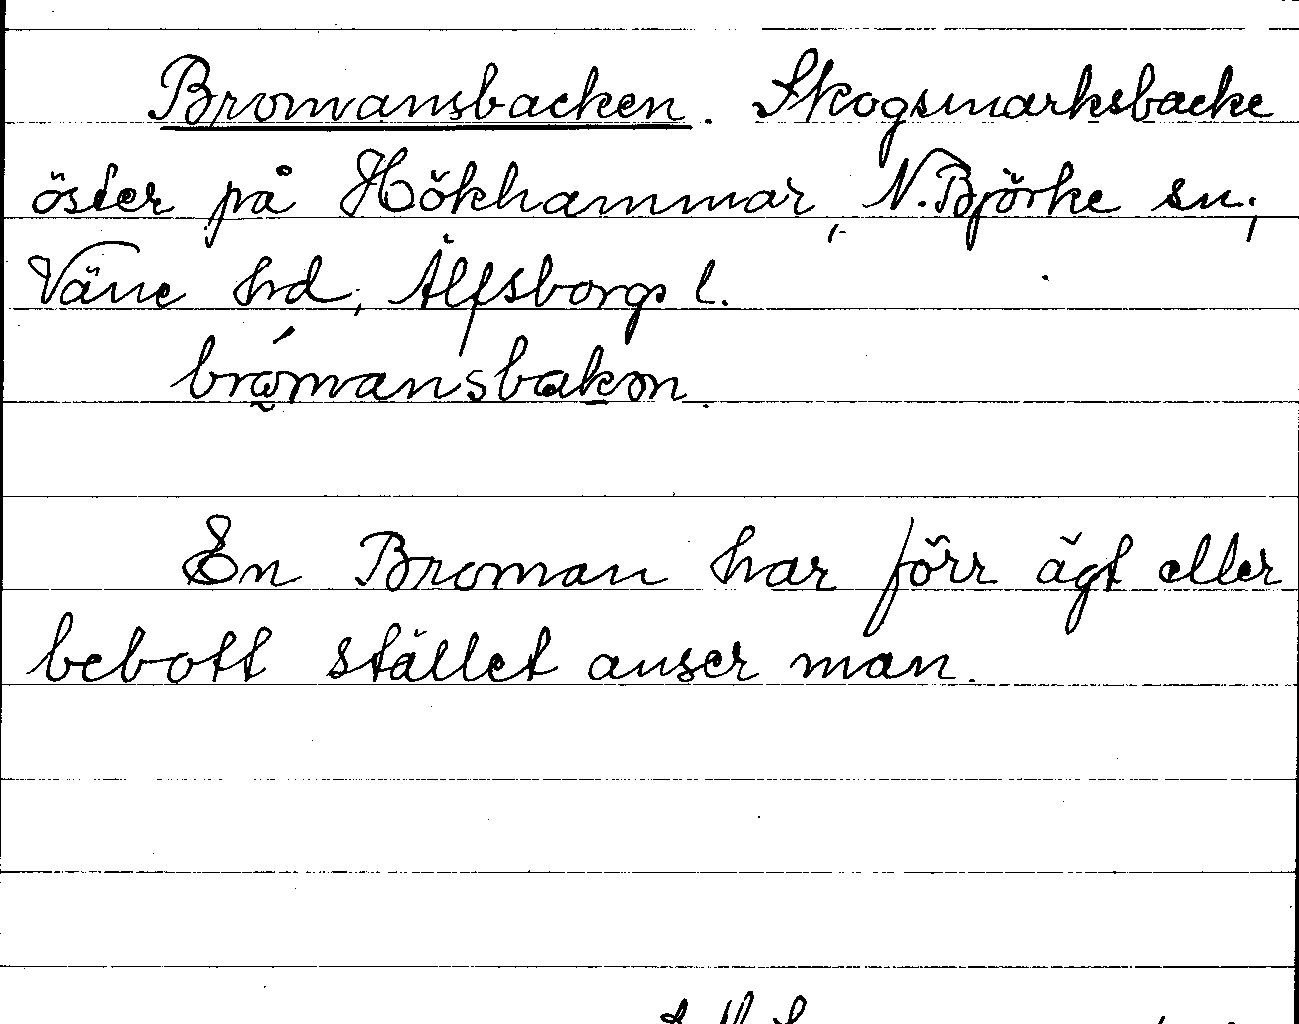 Bromansbacken. Skogsmarksbacke
öster på Hökhammar, N. Björke sn,
Väne hd, Älfsborgs l.
bromansbakən.
En Broman har förr ägt eller
bebott stället anser man.